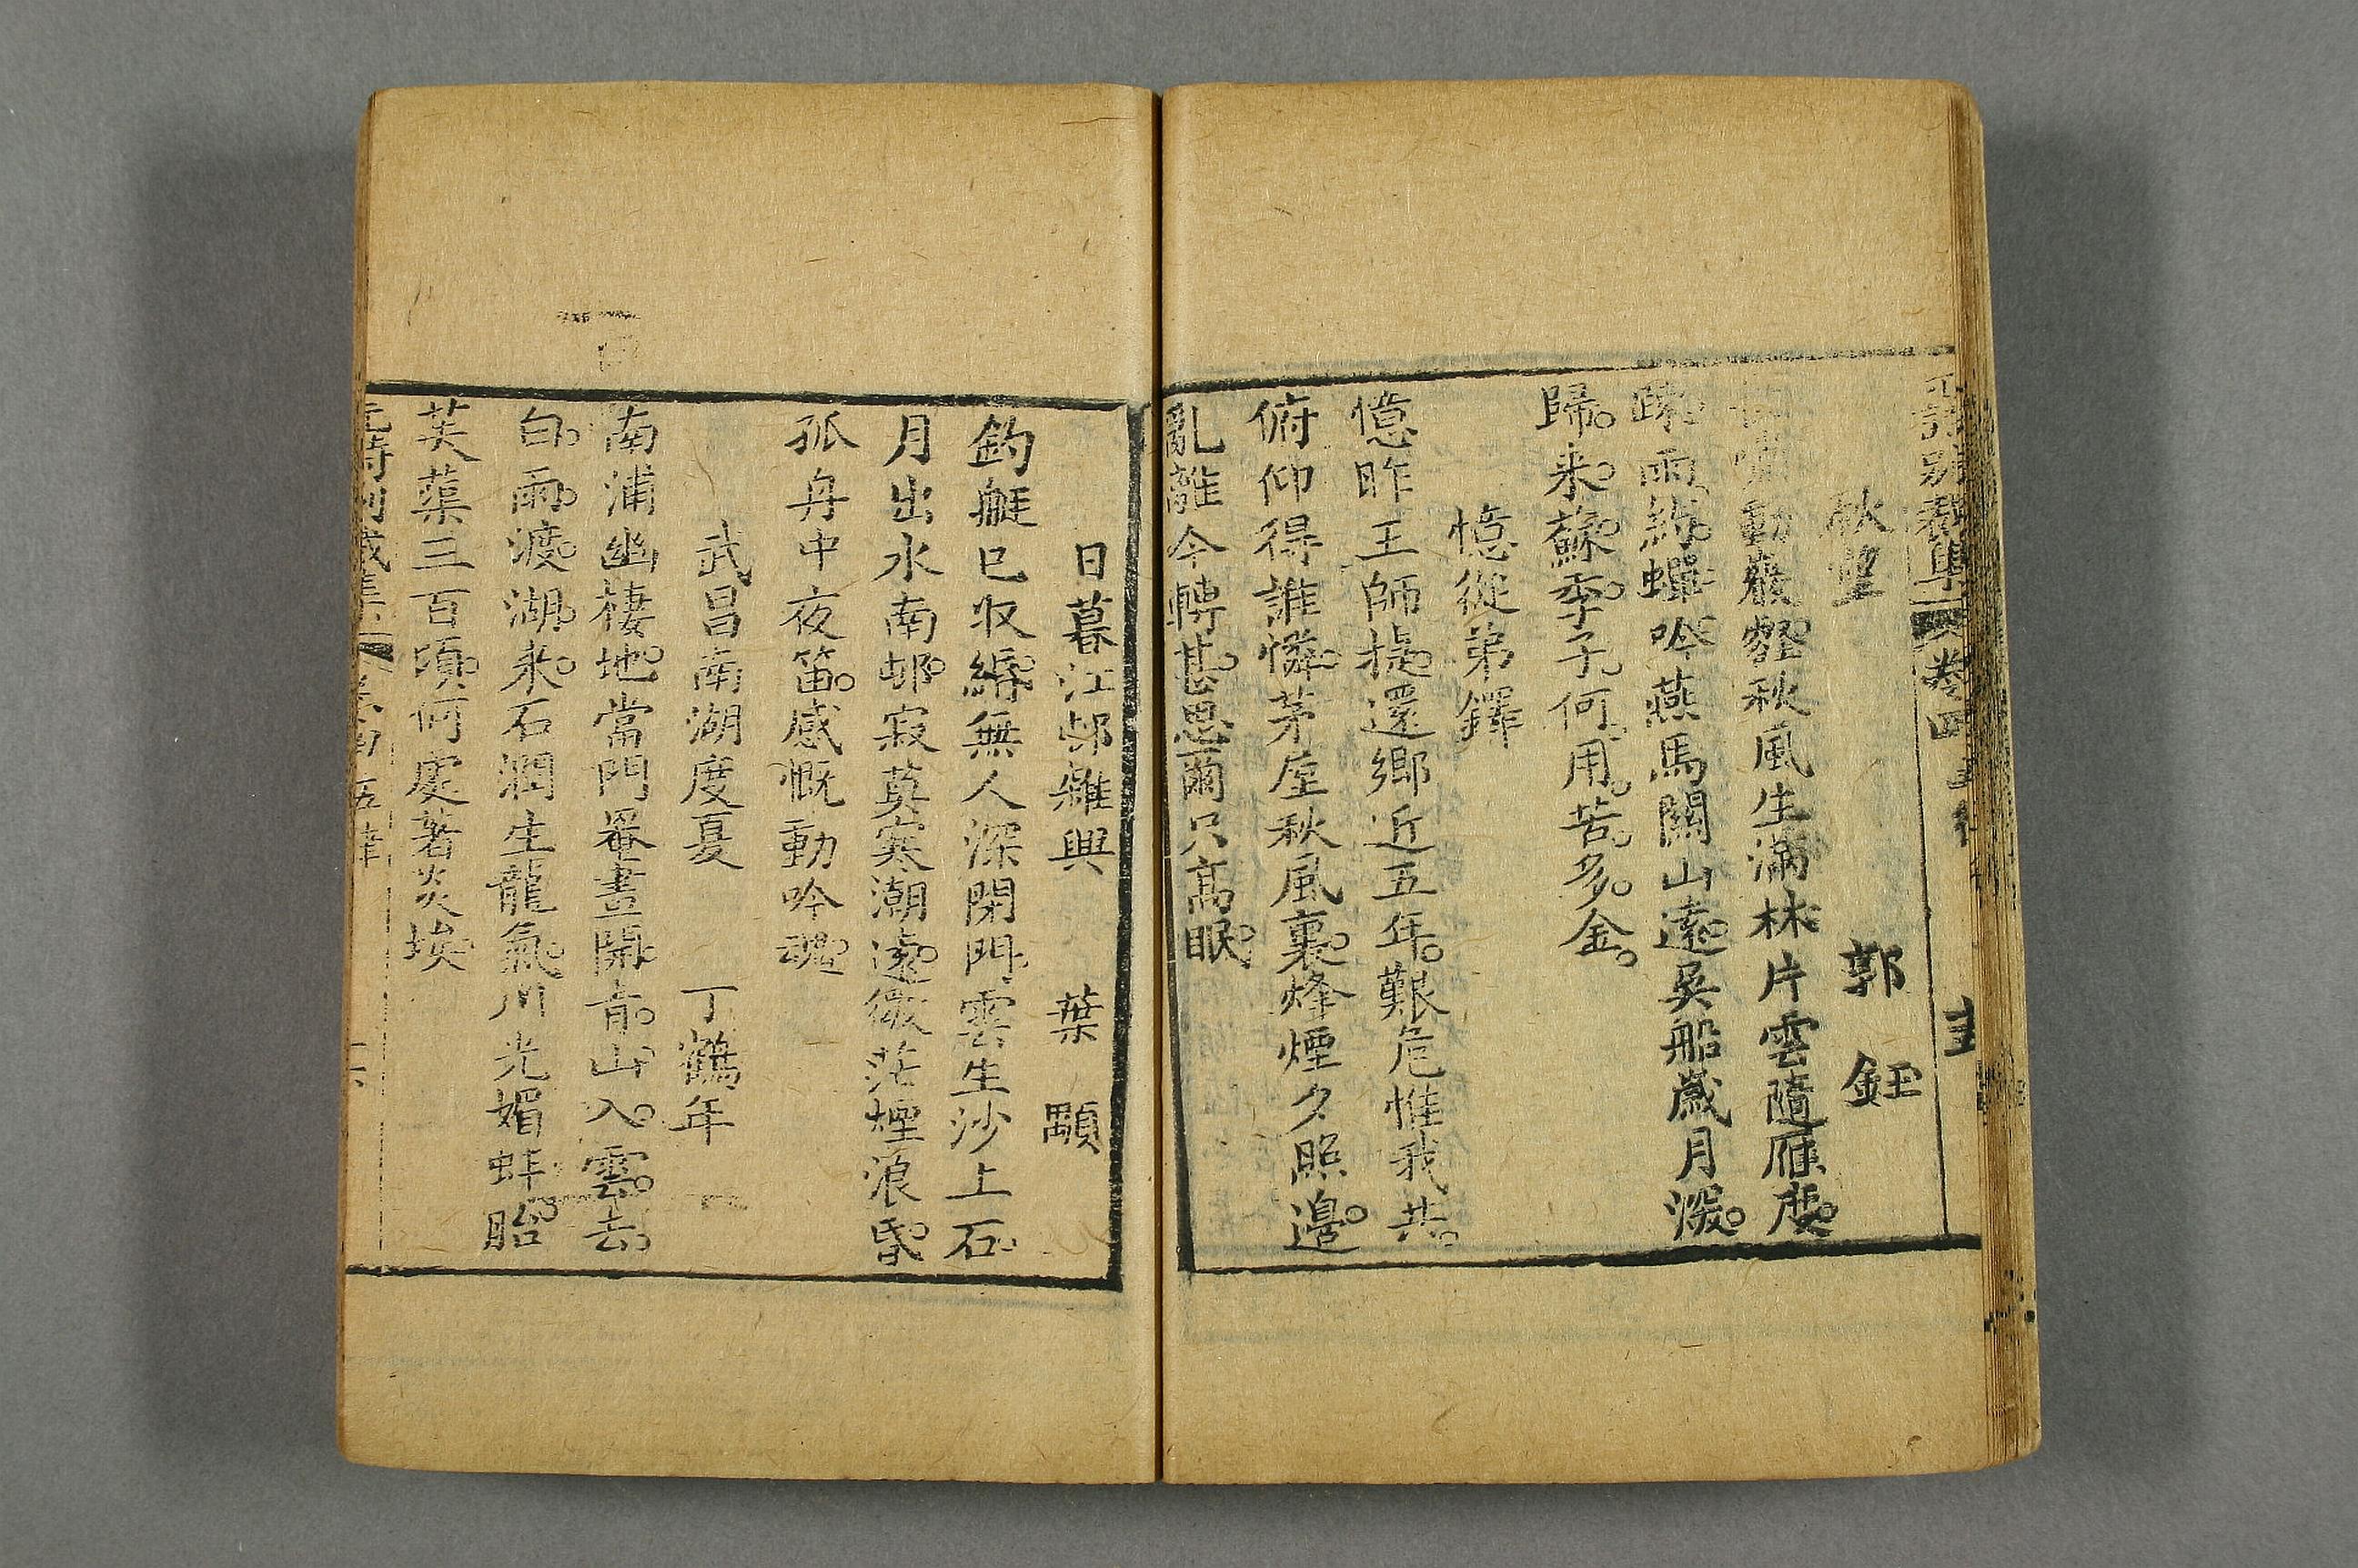 秋望　郭鈺
嘯動巖壑秋風生滿林片雲隨雁度
疎雨約蟬吟燕馬關山遠吳船歲月深
歸來蘇季子何用苦多金
憶從弟鐸
憶昨王師捷還鄉近五年艱危惟我共
俯仰得誰憐茅屋秋風裏烽煙夕照邊
亂離今轉甚思爾只高眠
日暮江邨雜興　葉顒
釣艇已收緡無人深閉門雲生沙上石
月出水南邨寂莫寒潮遠微茫煙浪昏
孤舟中夜笛感慨動吟魂
武昌南湖度夏　丁鶴年
南浦幽棲地當門罨畫開青山入雲去
白雨渡湖來石潤生龍氣川光媚蚌胎
芙蕖三百頃何處著炎埃